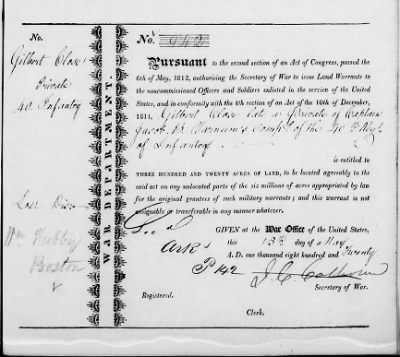 No.
Gilbert Close
Private
40 Infantry
Wm
Boston
WAR DEPARTMENT.
No. 942
Pursuant to the second section of an Act of Congress, passed the
6th of May, 1812, authorising the Secretary of War to issue Land Warrants to
the noncommissioned Officers and Soldiers enlisted in the service of the United
States, and in conformity with the 4th section of an Act of the 10th of December,
1814, Gilbert Close late a Private of Captain
Jacob B. Varnum's Comp. of the 40 Regt
of Infantry
is entitled to
THREE HUNDRED AND TWENTY ACRES OF LAND, to be located agreeably to the
said act on any unlocated parts of the six millions of acres appropriated by law
for the original grantees of such military warrants; and this warrant is not
assignable or transferable in any manner whatever.
GIVEN at the War Office of the United States,
this 13 day of May
A. D. one thousand eight hundred and Twenty
Ark
J. C. Calhoun
Secretary of War.
Registered.
Clerk.